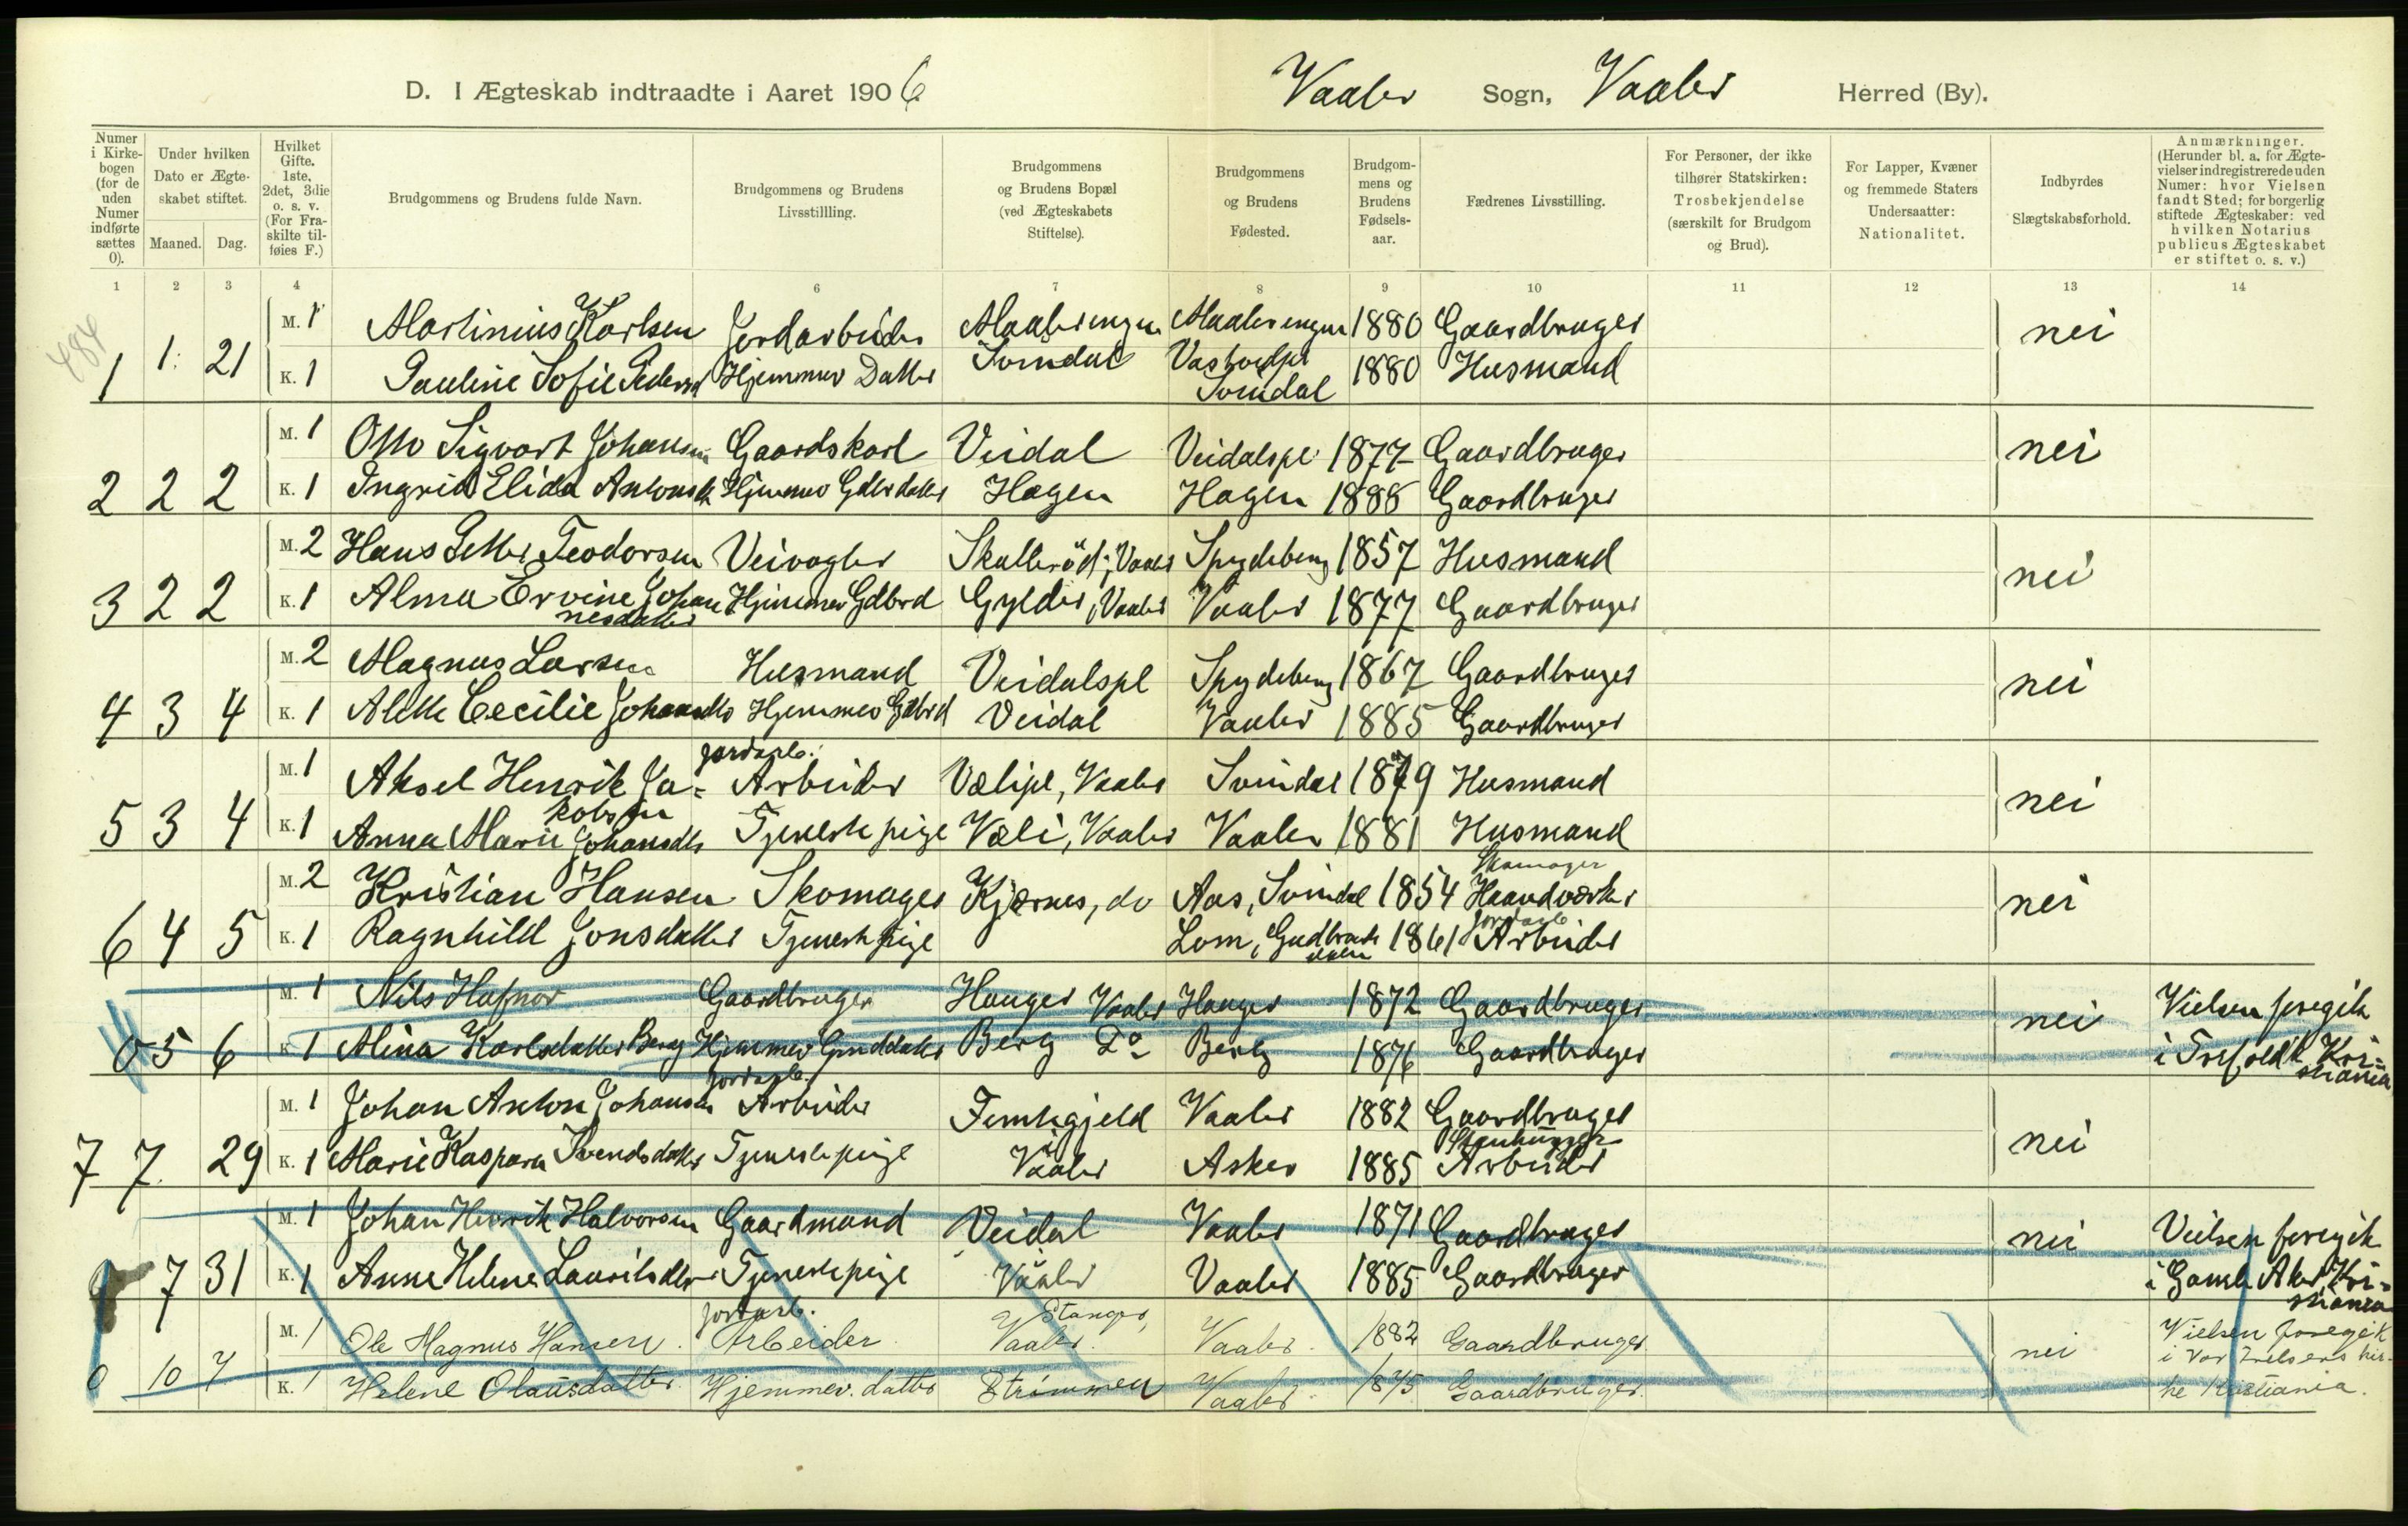 D. I Ægteskab indtraadte i Aaret 1906 Vaaler Sogn, Vaaler Herred (By).
Numer i Kirkebogen (for de uden Numer indførte sættes 0).
Under hvilken Dato er Ægteskabet stiftet.
Maaned. Dag.
Hvilket Gifte. 1ste, 2det, 3die o. s. v. (For Fraskilte tilføies F.)
Brudgommens og Brudens fulde Navn.
Brudgommens og Brudens Livsstillling.
Brudgommens og Brudens Bopæl (ved Ægteskabets Stiftelse).
Brudgommens og Brudens Fødested.
Brudgommens og Brudens Fødselsaar.
Fædrenes Livsstilling.
For Personer, der ikke tilhører Statskirken: Trosbekjendelse (særskilt for Brudgom og Brud).
For Lapper, Kvæner og fremmede Staters Undersaatter: Nationalitet.
Indbyrdes Slægtskabsforhold.
Anmærkninger. (Herunder bl. a. for Ægtevielser indregistrerede uden Numer: hvor Vielsen fandt Sted; for borgerlig stiftede Ægteskaber: ved hvilken Notarius publicus Ægteskabet er stiftet o. s. v.)
1 2 3 4 6 7 8 9 10 11 12 13 14
484
M. 1 Martinius Karlsen Jordarbeider 1880 Gaardbruger nei
1 1. 21 K. 1 Pauline Sofie Hjemmev Datter Svindal Svindal 1880 Husmand
M. 1 Otto Sigvart Johansen Gaardskarl Veidal Veidalspl 1877 Gaardbruger nei
2 2 2 K. 1 Ingrid Elida Hjemmev Gdbr datter Hagen Hagen 1888 Gaardbruger
M. 2 Hans Petter Teodorsen Veivogter Skallerød, Vaaler Spydeberg 1857 Husmand nei
3 2 2 K. 1 Alma Ervine Johannesdatter Hjemmev Gdbrd Gylder, Vaaler Vaaler 1877 Gaardbruger
M. 2 Magnus Larsen Husmand Veidalspl Spydeberg 1867 Gaardbruger nei
4 3 4 K. 1 Alette Cecilie Hjemmev Gdbrd Veidal Vaaler 1885 Gaardbruger
M. 1 Aksel Henrik Jakobsen jordarb. Arbeider Vælipl, Vaaler Svindal 1879 Husmand nei
5 3 4 K. 1 Anna Marie Johansdtr Tjenestepige Væli, Vaaler Vaaler 1881 Husmand
M. 2 Kristian Hansen Skomager Kjærnes, do Aas, Svindal 1854 Skomager Haandværker nei
6 4 5 K. 1 Ragnhild Jonsdatter Tjenestepige Lom, Gudbrandsdalen 1861 jordarb Arbeider
M. 1 Nils Gaardbruger Hauger Vaaler Hauger 1872 Gaardbruger nei Vielsen foregik
0 5 6 K. 1 Alina Karlsdatter Berg Hjemmev Berg Do Berg 1876 Gaardbruger i Trefoldk Kristiania
M. 1 Johan Anton Johansen jordarb. Arbeider Femkgjeld Vaaler 1882 Gaardbruger nei
7 7. 29 K. 1 Marie Kaspara Svendsdatter Tjenestepige i Vaaler Asker 1885 Stenhugger Arbeider
M. 1 Johan Henrik Halvorsen Gaardmand Veidal Vaaler 1871 Gaardbruger nei Vielsen foregik
0 7 31 K. 1 Anne Helene Lauritsdtr Tjenestepige Vaaler Vaaler 1885 Gaardbruger i Gamle Aker, Kristiania
M. 1 Ole Magnus Hansen. jordarb. Arbeider Stanger, Vaaler. Vaaler. 1882 Gaardbruger nei Vielsen foregik
0 10 7 K. 1 Helene Olausdatter. Hjemmev. datter Strömmen Vaaler. 1875 Gaardbruger. i Vor Frelsers kirke Kristiania.